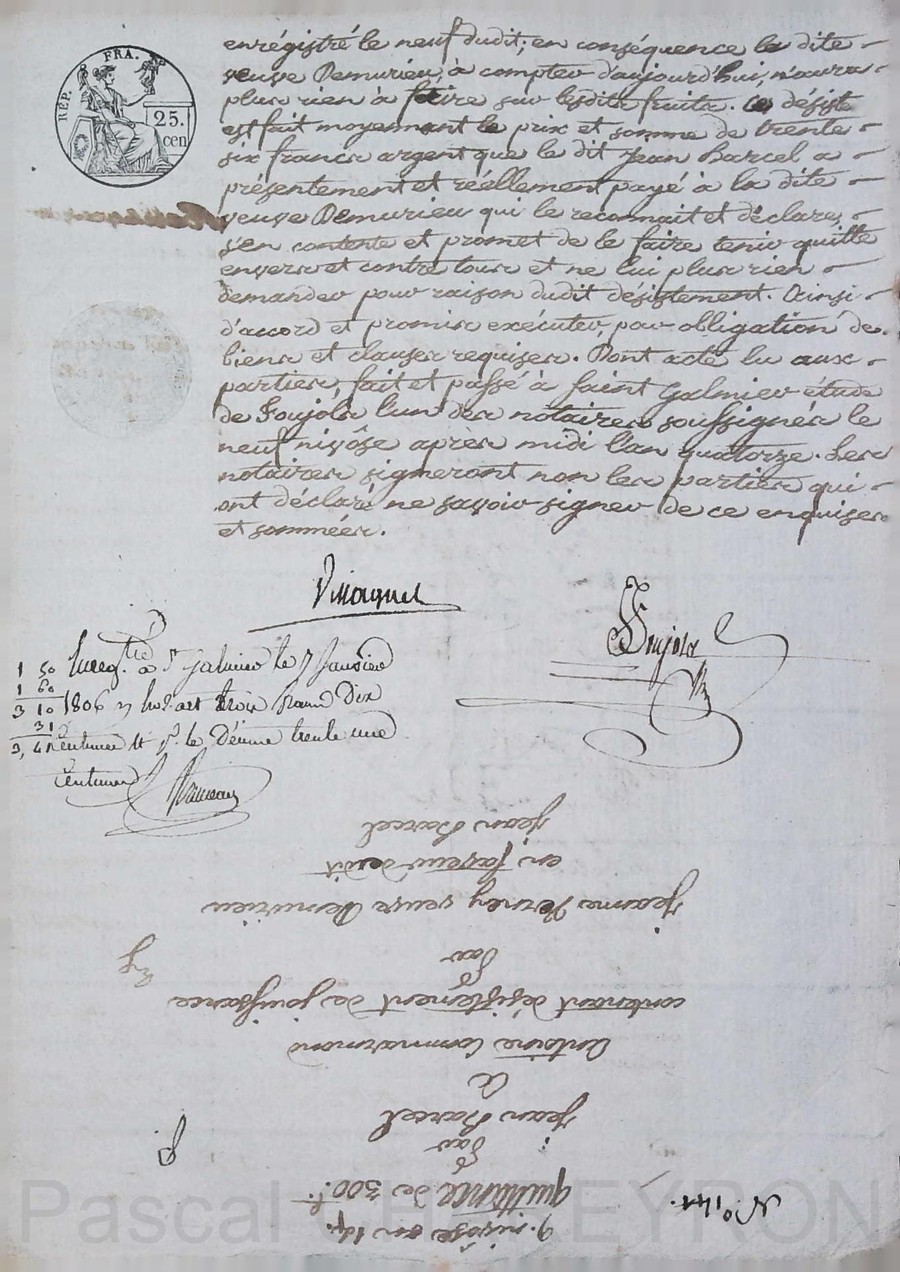 RÉP. FRA.
25.
cen
enrégistré le neuf dudit; en conséquence la dite
veuve Demurieu, à compter d'aujourd'hui, n'aura
plus rien à faire sur lesdits fruits. Ce désist
est fait moyennant le prix et somme de trente
six francs argent que le dit Jean Barcel a
présentement et réellement payé à la dite
veuve Demurieu qui le reconnait et déclare,
s'en contente et promet de le faire tenir quitte
envers et contre tous et ne lui plus rien
demander pour raison dudit désistement. Ainsi
d'accord et promis exécuter, par obligation de
biens et clauses requises. Dont acte lu aux
parties, fait et passé à Saint Galmier étude
de Soujols l'un des notaires soussignés le
neuf nivôse après midi l'an quatorze. Les
notaires signeront non les parties qui
ont déclaré ne savoir signer de ce enquises
et sommées.
Soujols
Enreg.tré à St Galmier le 7 Janvier
1806 reçu trois francs dix
centimes et pr. le Décime trente une
centimes
1 50
1 60
3 10
31
3, 41
N.o 141.
9. nivôse an 14.
quittance de 300.f
par
Jean Barcel
à
Antoine Commarmond
contenant désistement de jouissance
par
Jeanne Verney veuve Demurieu
en faveur dudit
Jean Barcel
Pascal